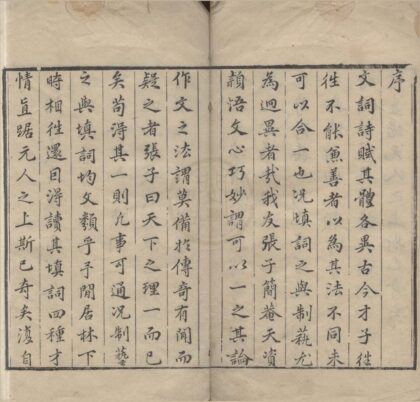 序
文詞詩賦其體各異古今才子徃
徃不能兼善者以為其法不同未
可以合一也况填詞之與制蓺尤
為迥異者哉我友張子簡菴天資
頴悟文心巧妙謂可以一之其論
作文之法謂莫備於傳奇有聞而
疑之者張子曰天下之理一而已
矣苟得其一則凢事可通况制蓺
之與填詞均文類乎予閒居林下
時相徃還因得讀其填詞四種才
情直踞元人之上斯已奇矣復自